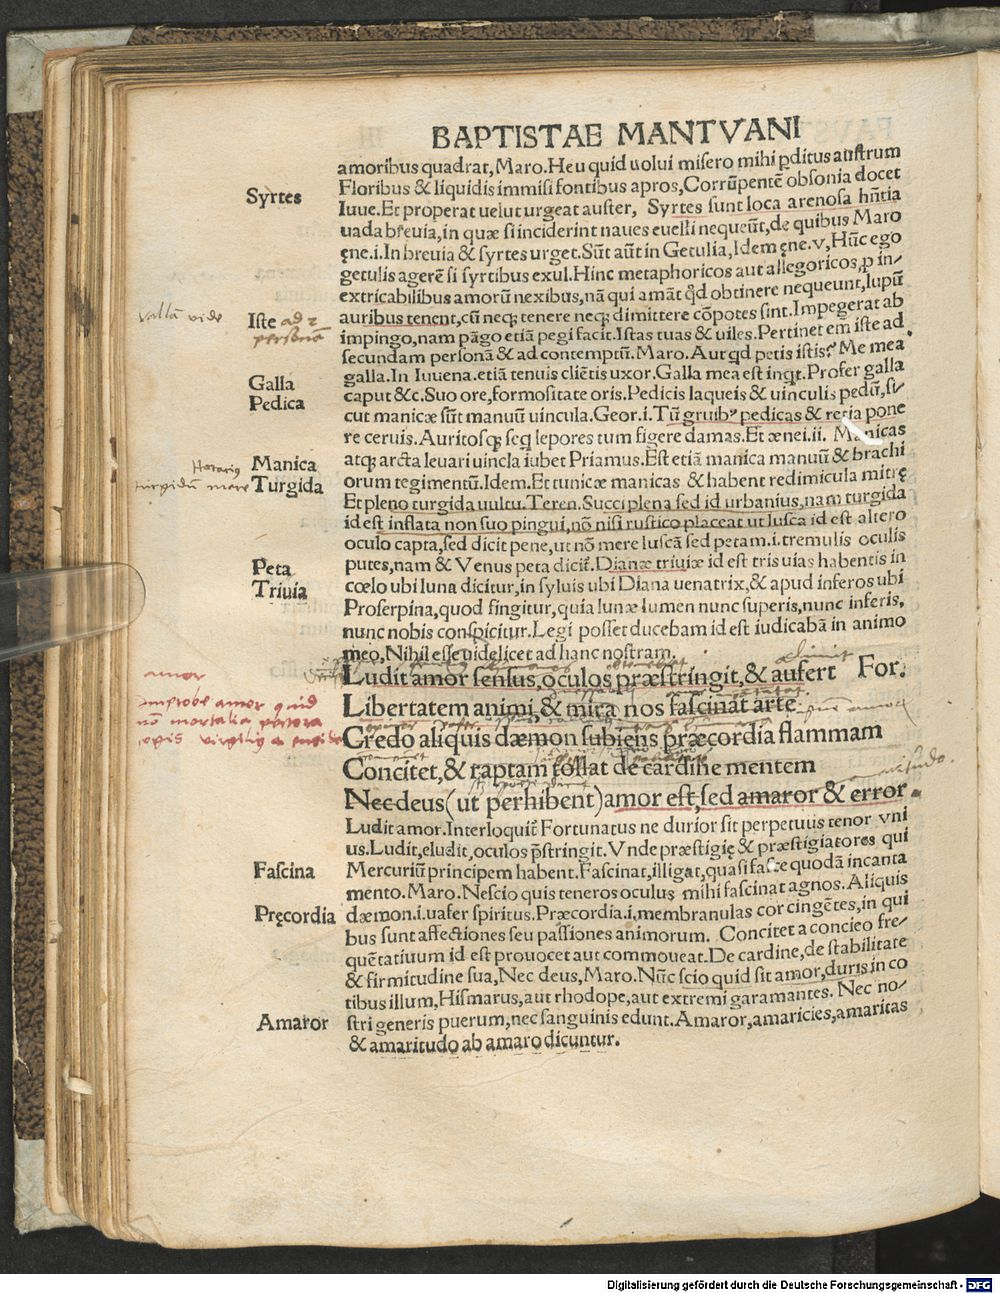 BAPTISTAE MANTVANI
amoribus quadrat, Maro. Heu quid uolui misero mihi ꝑditus austrum
Floribus & liquidis immisi fontibus apros, Corrūpentē obsonia docet
Iuue. Et properat uelut urgeat auster, Syrtes sunt loca arenosa hñtia
Syrtes
uada breuia, in quæ si inciderint naues euelli nequeūt, de quibus Maro
ęne. i. In breuia & syrtes urget. Sūt aūt in Getulia, Idem ęne. v, Hūc ego
getulis agerē si syrtibus exul. Hinc metaphoricos aut allegoricos, ꝓ in⸗
extricabilibus amorū nexibus, nā qui amāt ꝙd obtinere nequeunt, lupū
auribus tenent, cū neqꝫ tenere neqꝫ dimittere cōpotes sint. Impegerat ab
vallā vide
Iste ad 2
personā
impingo, nam pāgo etiā pegi facit. Istas tuas & uiles. Pertinet em iste ad
secundam personā & ad contemptū. Maro. Aut qd petis istis? Me mea
galla. In Iuuena. etiā tenuis cliētis uxor. Galla mea est inqt. Profer galla
Galla
caput &c. Suo ore, formositate oris. Pedicis laqueis & uinculis pedū, si⸗
Pedica
cut manicæ sūt manuū uincula. Geor. i. Tū gruibꝰ pedicas & retia pone
re ceruis. Auritosqꝫ seq lepores tum figere damas. Et ænei. ii. Manicas
atqꝫ arcta leuari uincla iubet Priamus. Est etiā manica manuū & brachi
Manica
orum tegimentū. Idem. Et tunicæ manicas & habent redimicula mitrę
Horatius
turgidū mare
Turgida
Et pleno turgida uultu. Teren. Succi plena sed id urbanius, nam turgida
id est inflata non suo pingui, nō nisi rustico placeat ut lusca id est altero
oculo capta, sed dicit pene, ut nō mere luscā sed petam. i. tremulis oculis
putes, nam & Venus peta dicit᷑. Dianæ triuiæ id est tris uias habentis in
Peta
cœlo ubi luna dicitur, in syluis ubi Diana uenatrix, & apud inferos ubi
Triuia
Proserpina, quod fingitur, quia lunæ lumen nunc superis, nunc inferis,
nunc nobis conspicitur. Legi posset ducebam id est iudicabā in animo
meo, Nihil esse uidelicet ad hanc nostram.
Ludit amor sensus, oculos præstringit, & aufert For.
Libertatem animi, & mira nos fascinat arte
Credo aliquis dæmon subiens præcordia flammam
Concitet, & raptam tollat de cardine mentem
Nec deus (ut perhibent) amor est, sed amaror & error.
amor
improbe amor quid
nō mortalia pectora
cogis virgilius
Ludit amor. Interloquit᷑ Fortunatus ne durior sit perpetuus tenor vni
us. Ludit, eludit, oculos p̄stringit. Vnde præstigię & præstigiatores qui
Mercuriū principem habent. Fascinat, illigat, quasi fasce quodā incanta
Fascina
mento. Maro. Nescio quis teneros oculus mihi fascinat agnos. Aliquis
dæmon. i. uafer spiritus. Præcordia. i, membranulas cor cingētes, in qui
Pręcordia
bus sunt affectiones seu passiones animorum. Concitet a concieo fre⸗
quētatiuum id est prouocet aut commoueat. De cardine, de stabilitate
& firmitudine sua, Nec deus, Maro. Nūc scio quid sit amor, duris in co
tibus illum, Hismarus, aut rhodope, aut extremi garamantes. Nec no⸗
stri generis puerum, nec sanguinis edunt. Amaror, amaricies, amaritas
Amaror
& amaritudo ab amaro dicuntur.
Digitalisierung gefördert durch die Deutsche Forschungsgemeinschaft - DFG